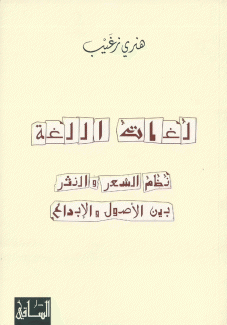 هنري زغَيْب
لغات اللغة
نُظُم الشعر والنثر
بين الأصول والإبداع
الساقي